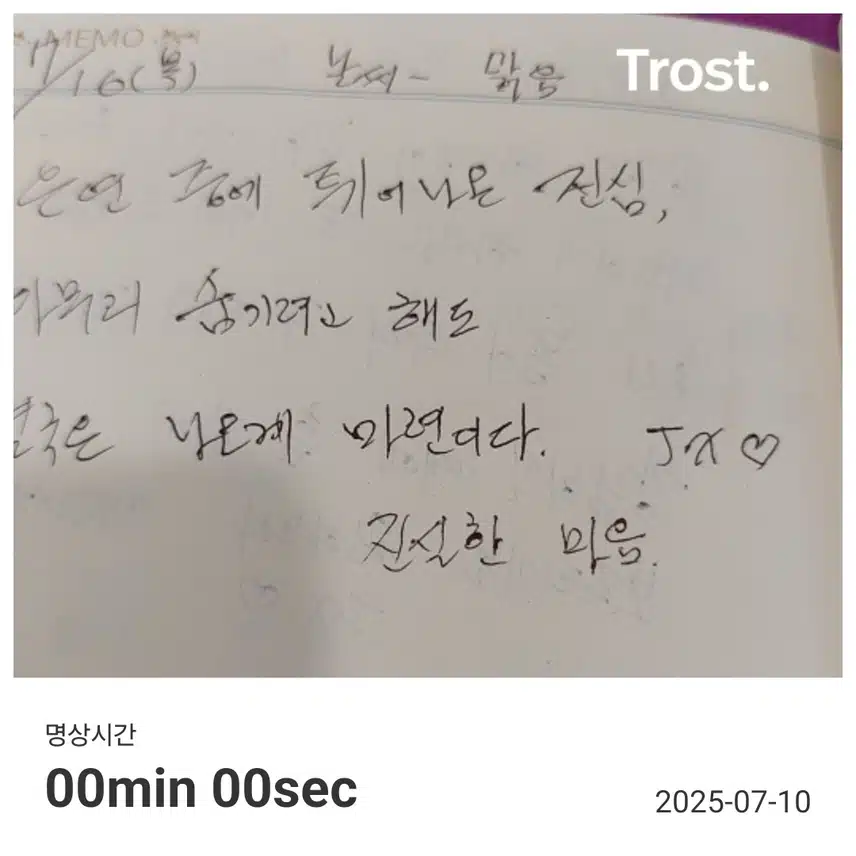 MEMO
/16(목) 날씨- 맑음
Trost.
은연 중에 튀어나온 진심,
아무리 숨기려고 해도
결국은 나오게 마련이다. J.X♡
진실한 마음.
명상시간
00min 00sec
2025-07-10